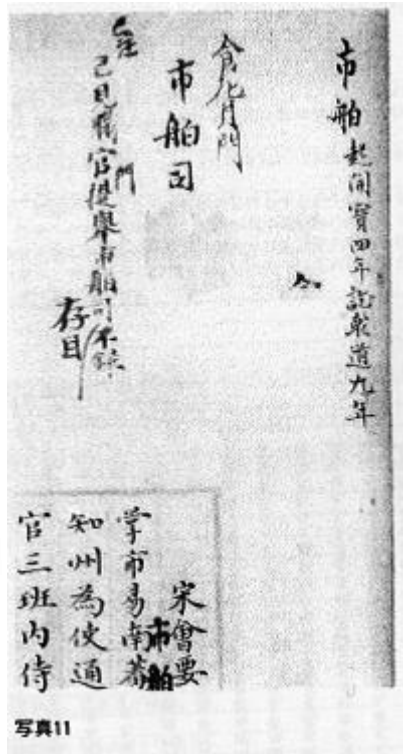 市舶起開寶四年訖乾道九年
食貨門
市舶司
注
已見職官門提舉市舶司不錄
存目
宋會要
市舶
掌市易南蕃
知州為使通
官三班内侍
写真11